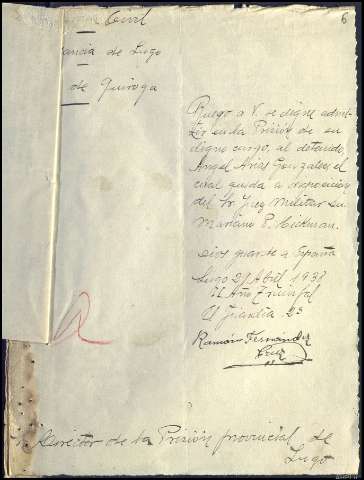 6
Civil
ancia de Lugo
de Quiroga
Ruego a V. se digne admi-
tir en la Prisión de su
digno cargo, al detenido
Angel Arias Gonzalez, el
cual queda a disposición
del Sr Juez Militar Sr.
Mariano P. Hickman.
Dios guarde a España
Lugo 21 Abril 1938
II Año Triunfal
El Guardia 2º
Ramón Fernández
Cruz
Director de la Prisión provincial de
Lugo